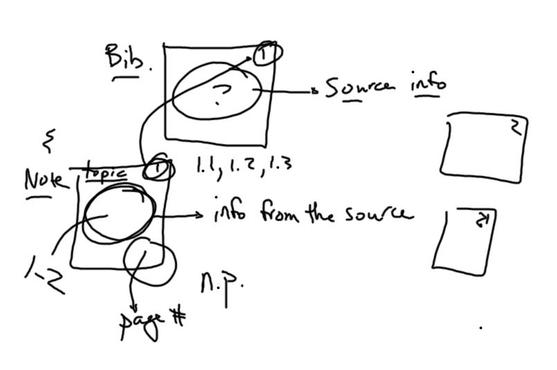 Bib.
1
?
Source info
2
&
Note
topic
1
1.1, 1.2, 1.3
info from the source
1-2
n.p.
page #